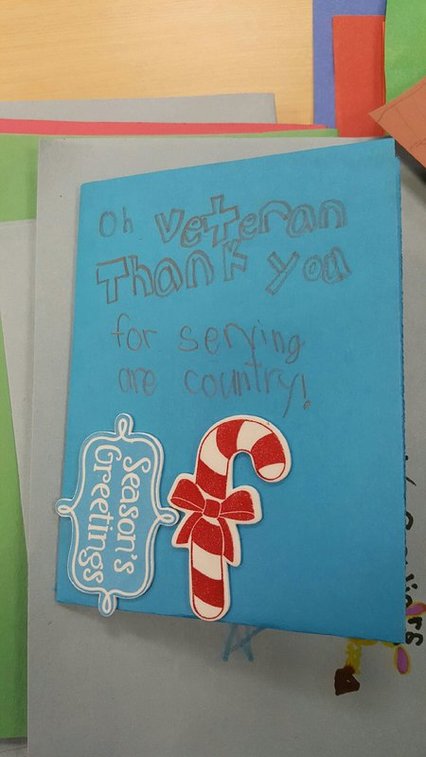 Oh Veteran
Thank you
for serving
are country!
Season's
Greetings